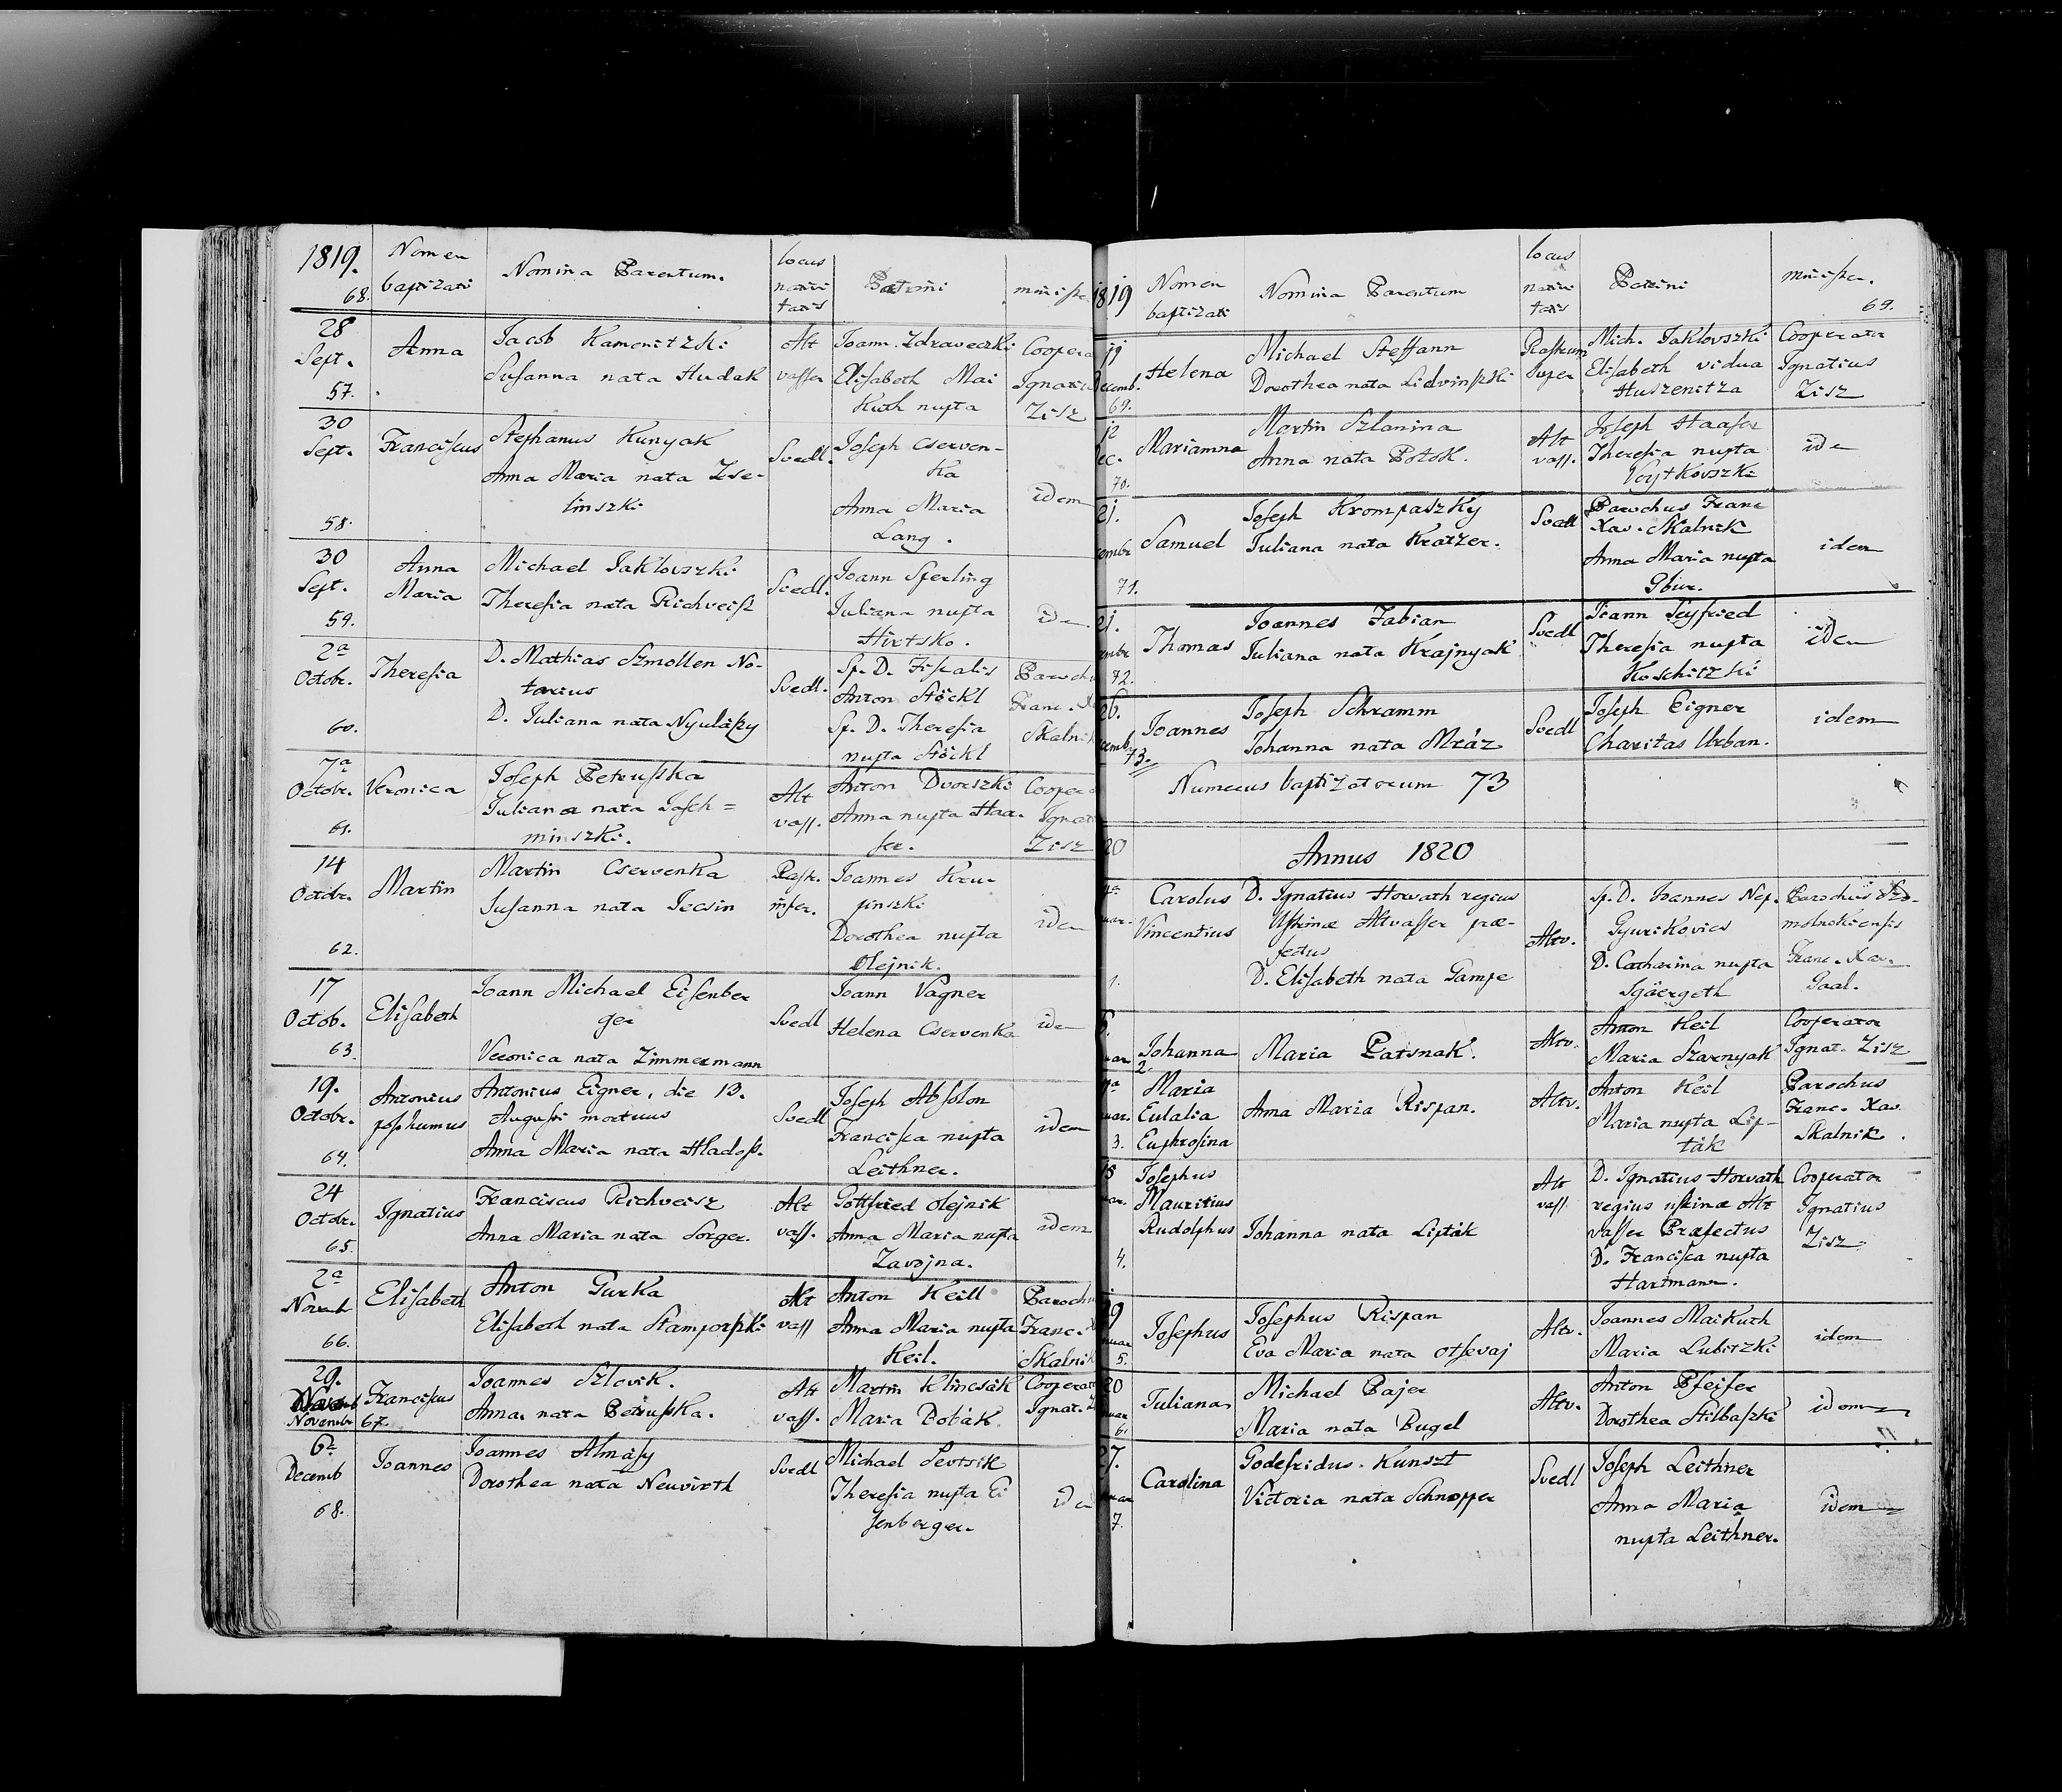 1819.
68.
Nomen
baptizati
Nomina Parentum.
locus
nativi
tatis
Patrini
28
Sept.
57.
Anna
Jacob Kamenitzki
Susanna nata Hudak
Alt
vasser
Joann. Zdraveczki
Elisabeth Mai
Kuth nupta
Coopera
Ignatiu
Zisz
30
Sept.
58.
Franciscus
Stephanus Kunyak
Anna Maria nata Zse-
linszki
Svedl.
Joseph Cserven-
ka
Anna Maria
Lang.
idem
30
Sept.
59.
Anna
Maria
Michael Jaklovszki
Theresia nata Richveisz
Svedl.
Joann Sperling
Juliana nupta
Hirtsko.
idem
2a
Octobr.
60.
Theresia
D. Mathias Szmollen No-
tarius
D. Juliana nata Nyulászy
Svedl.
Sp. D. Fiscalis
Anton Stöckl
Sp. D. Theresia
nupta Stöckl
Parochu
Franc. Xa
Skalnik
7a
Octobr.
61.
Veronica
Joseph Petruska
Juliana nata Jasch=
minszki.
Alt
vass.
Anton Dvorszki
Anna nupta Haa-
ser.
Coopera
Ignati
Zisz
14
Octobr.
62.
Martin
Martin Cservenka
Susanna nata Jecsin
Rastr.
infer.
Joannes Kru
pinszki
Dorothea nupta
Olejnik.
idem
17
Octob.
63.
Elisabeth
Joann Michael Eisenber
ger
Veronica nata Zimmermann
Svedl
Joann Vagner
Helena Cservenka
idem
19.
Octobr.
64.
Antonius
posthumus
Antonius Eigner, die 13.
Augusti mortuus
Anna Maria nata Hladoss.
Svedl
Joseph Absolon
Francisca nupta
Leithner.
idem
24
Octobr.
65.
Ignatius
Franciscus Richveisz
Anna Maria nata Sorger.
Alt
vass.
Gottfried Olejnik
Anna Maria nupta
Zavojna.
idem
2a
Novemb
66.
Elisabeth
Anton Gurka
Elisabeth nata Stamporszki
Alt
vass
Anton Keill
Anna Maria nupta
Keil.
Parochu
Franc. X
Skalnik
29.
Novembr 67.
Franciscus
Joannes Szlovik.
Anna nata Petruska.
Alt
vass.
Martin Klincsák
Maria Bobák
Cooperat
Ignat. Z
6a
Decemb
68.
Joannes
Joannes Almásy
Dorothea nata Neuvirth
Svedl
Michael Sevtsik
Theresia nupta Ei
senberger.
idem
1819
Nomen
baptizati
Nomina Parentum
locus
nativi
tatis
Patrini
minister.
69.
19
Decemb.
69.
Helena
Michael Steffann
Dorothea nata Lidvinszki
Rastrum
Super
Mich. Jaklovszki
Elisabeth vidua
Huszenitza
Cooperator
Ignatius
Zisz
12
ec.
70.
Marianna
Martin Szlanina
Anna nata Potok.
Alt
vass.
Joseph Haaser
Theresia nupta
Vojtkovszki
idem
21.
embr
71.
Samuel
Joseph Krompaszky
Juliana nata Kratzer.
Svedl
Parochus Franc
Xav. Skalnik
Anna Maria nupta
Gbur.
idem
21.
embr
72.
Thomas
Joannes Fabian
Juliana nata Krajnyak
Svedl
Joann Seyfried
Theresia nupta
Koschitzki
idem
26.
cemb.
73.
Joannes
Joseph Schramm
Johanna nata Mráz
Svedl
Joseph Eigner
Charitas Urban.
idem
Numerus baptizatorum 73
20
Annus 1820
uar.
1.
Carolus
Vincentius
D. Ignatius Horvath regius
Ustrinæ Altvasser præ-
fectus
D. Elisabeth nata Gampe
Altv.
Sp. D. Joannes Nep.
Gyurikovics
D. Catharina nupta
Parochus Szo-
molnokiensis
Franc. Xav.
Gaal.
uar
2.
Johanna
Maria Patsnak.
Altv.
Anton Keil
Maria Szarnyak
Cooperator
Ignat. Zisz
uar.
3.
Maria
Eulalia
Euphrosina
Anna Maria Rispan.
Altv.
Anton Keil
Maria nupta Lip-
ták
Parochus
Franc. Xav.
Skalnik.
18
uar.
4.
Josephus
Mauritius
Rudolphus
Johanna nata Lipták
Alt
vass
D. Ignatius Horvath
regius ustrinæ Alt
vasser Præfectus
D. Francisca nupta
Hartmann.
Cooperator
Ignatius
Zisz
19
uar
5.
Josephus
Josephus Rispan
Eva Maria nata Otsevaj
Altv.
Joannes Maikuth
Maria Lubitzki
idem
20
uar
6.
Juliana
Michael Pajer
Maria nata Bugel
Altv.
Anton Pfeifer
Dorothea Stilbaszki
idem
27.
uar
7.
Carolina
Godefridus Kunszt
Victoria nata Schnopper
Svedl
Joseph Leithner
Anna Maria
nupta Leithner.
idem